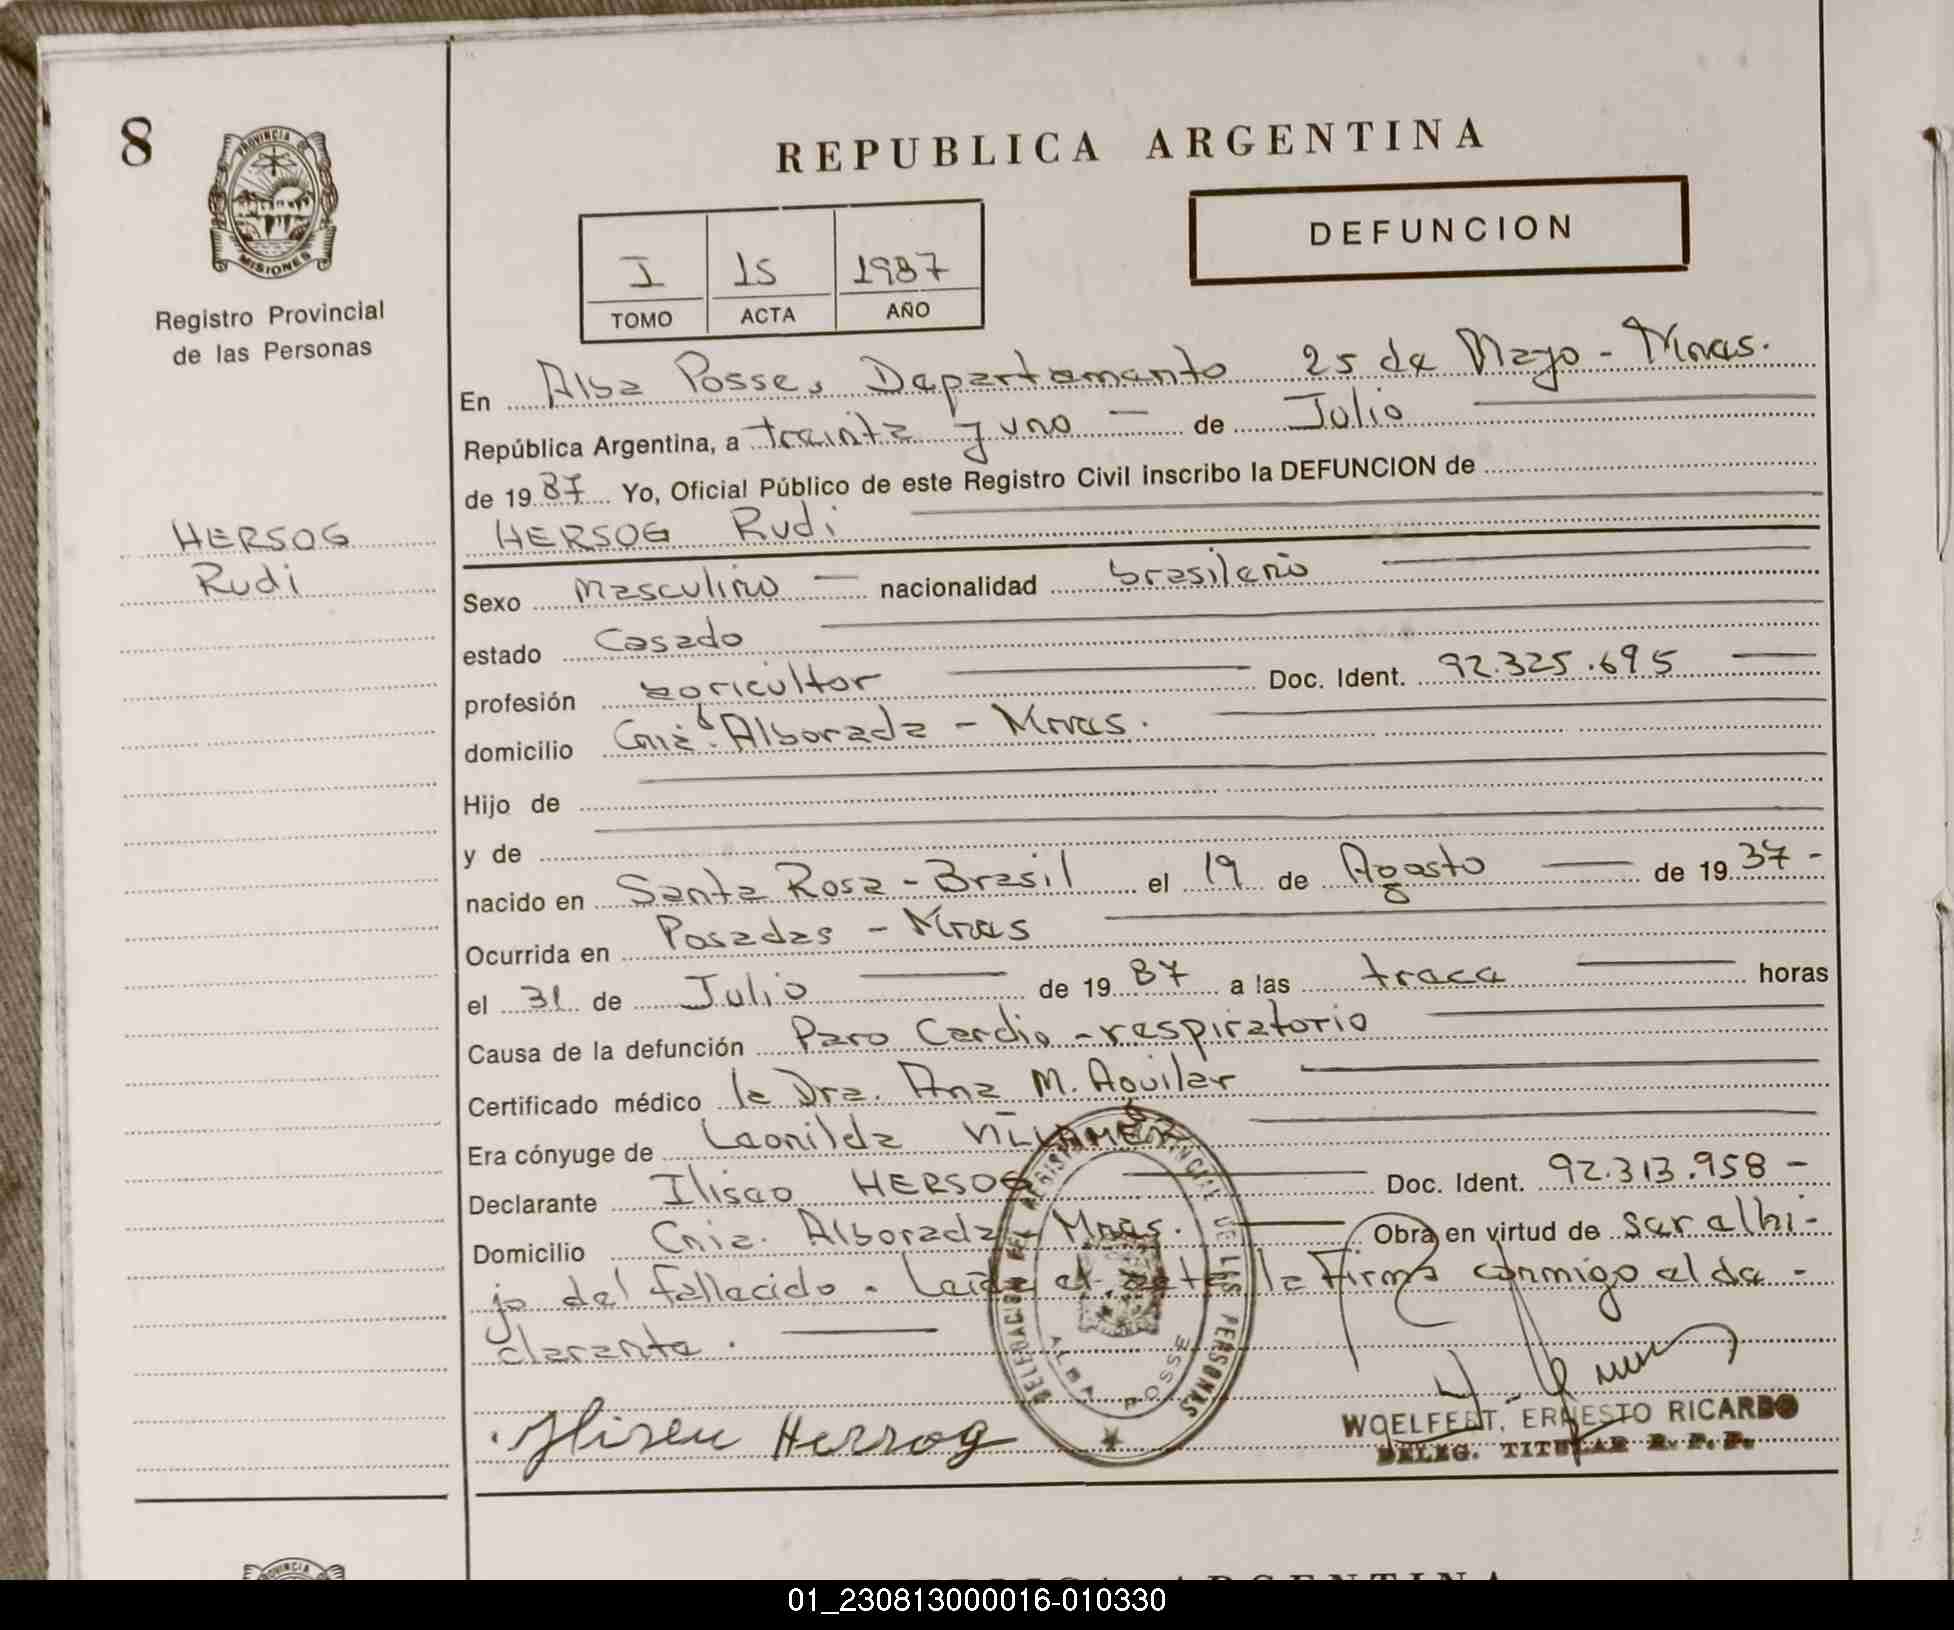 8
PROVINCIA DE
MISIONES
Registro Provincial
de las Personas
HERSOG
Rudi
REPUBLICA ARGENTINA
DEFUNCION
I 15 1987
TOMO ACTA AÑO
En Alba Posse, Departamento 25 de Mayo - Mnes.
República Argentina, a treinta y uno — de Julio
de 19 87 Yo, Oficial Público de este Registro Civil inscribo la DEFUNCION de
HERSOG Rudi
Sexo masculino — nacionalidad brasileño
estado Casado
profesión agricultor Doc. Ident. 92.325.695
domicilio Cnia. Alborada - Mnes.
Hijo de
y de
nacido en Santa Rosa - Brasil el 19 de Agosto — de 19 37 -
Ocurrida en Posadas - Mnes
el 31 de Julio — de 19 87 a las trece — horas
Causa de la defunción Paro Cardio-respiratorio
Certificado médico la Dra. Ana M. Aguilar
Era cónyuge de Leonilda
Declarante Iliseo HERSOG Doc. Ident. 92.313.958 -
Domicilio Cnia. Alborada - Mnes. Obra en virtud de ser el hi-
jo del fallecido. Leída el acta la firma conmigo el de -
clarante.
Iliseu Herzog
DELEGACION DEL REGISTRO PROVINCIAL DE LAS PERSONAS
ALBA POSSE
WOELFERT, ERNESTO RICARDO
DELEG. TITULAR R. P. P.
PROVINCIA
REPUBLICA ARGENTINA
01_230813000016-010330